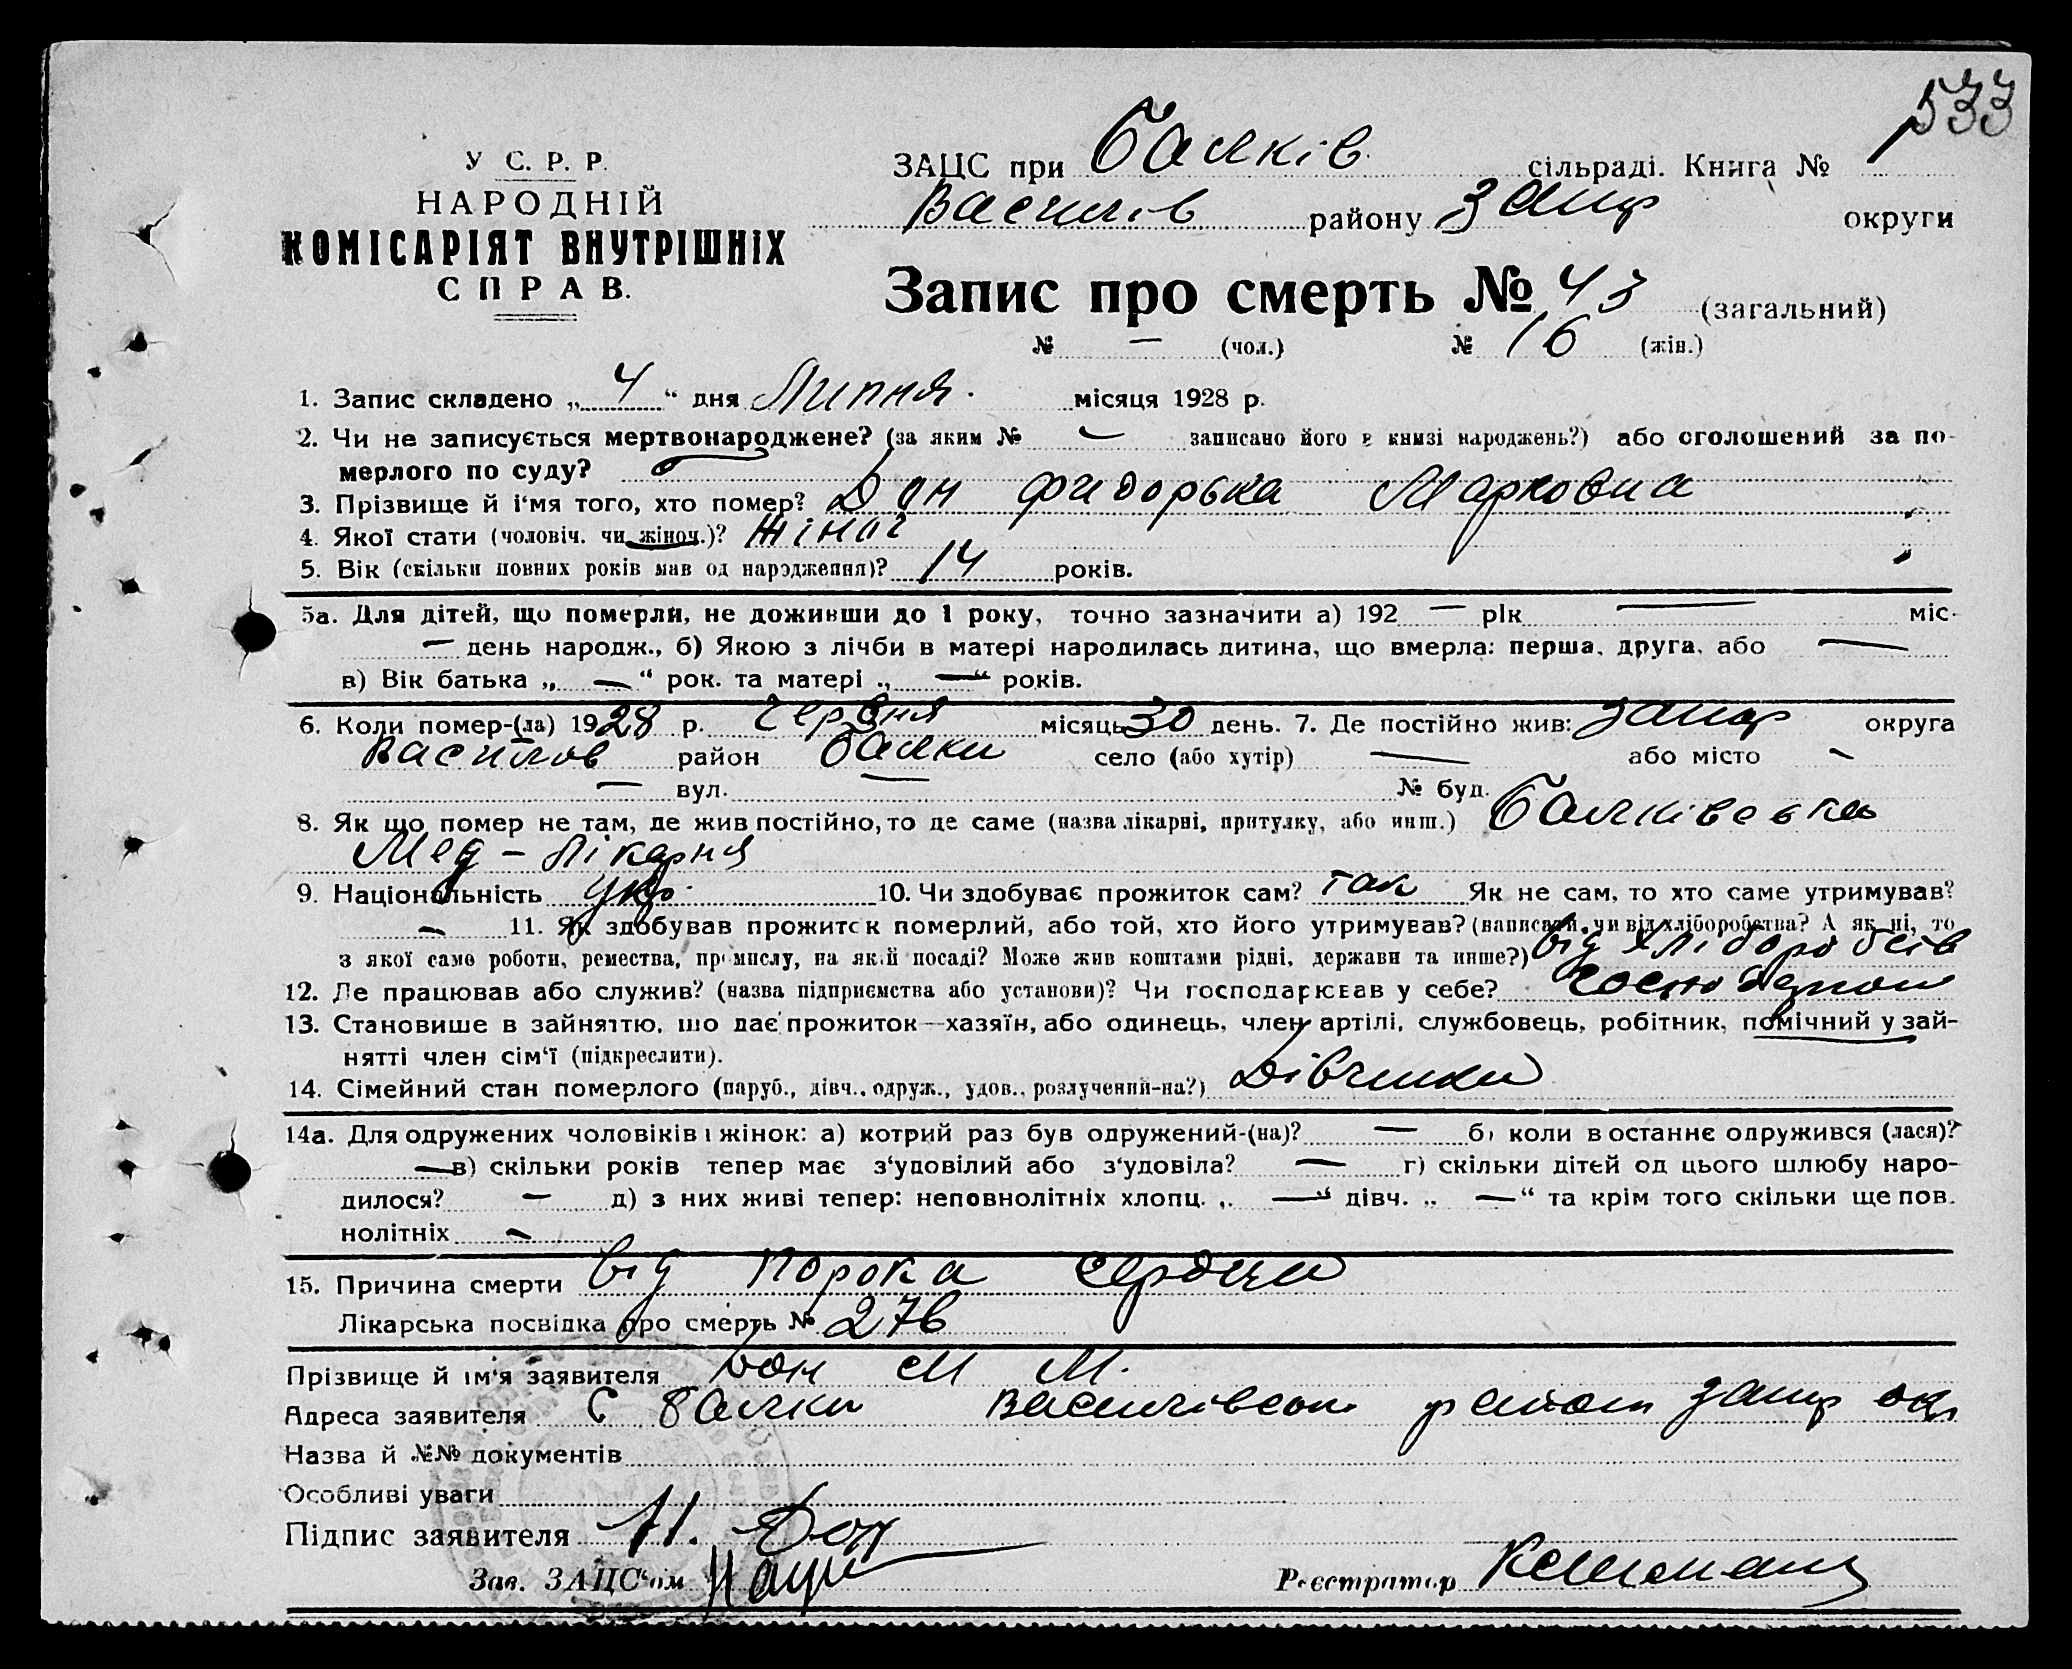 533
У С. Р. Р.
НАРОДНІЙ
КОМІСАРІЯТ ВНУТРІШНІХ
СПРАВ.
ЗАЦС при Балків сільраді. Книга № 1
Василів району Запор округи
Запис про смерть № 43 (загальний)
№ — (чол.) № 16 (жін.)
1. Запис складено „ 4 “ дня Липня. місяця 1928 р.
2. Чи не записується мертвонароджене? (за яким № — записано його в книзі народжень?) або оголошений за по-
мерлого по суду?
3. Прізвище й і‘мя того, хто помер? Дон Фидорька Марковна
4. Якої стати (чоловіч. чи жіноч.)? Жіної
5. Вік (скільки повних років мав од народження)? 14 років.
5а. Для дітей, що померли, не доживши до 1 року, точно зазначити а) 192 — рік — міс.
— день народж., б) Якою з лічби в матері народилась дитина, що вмерла: перша, друга, або —
в) Вік батька „ — “ рок. та матері „ — “ років.
6. Коли помер-(ла) 1928 р. Червня місяць 30 день. 7. Де постійно жив: Запор округа
Василов район Балки село (або хутір) — або місто —
— вул. — № буд.
8. Як що помер не там, де жив постійно, то де саме (назва лікарні, притулку, або инш.) Балківська
Мед – лікарня
9. Національність Укр. 10. Чи здобуває прожиток сам? Так Як не сам, то хто саме утримував?
— 11. Як здобував прожиток померлий, або той, хто його утримував? (написати, чи від хліборобства? А як ні, то
з якої саме роботи, ремества, промислу, на якій посаді? Може жив коштами рідні, держави та инше?) від хліборобств
12. Де працював або служив? (назва підприємства або установи)? Чи господарював у себе?
13. Становише в зайняттю, що дає прожиток—хазяїн, або одинець, член артілі, службовець, робітник, помічний у зай-
нятті член сім‘ї (підкреслити).
14. Сімейний стан померлого (паруб., дівч., одруж., удов., розлучений-на?) Дівчика
14а. Для одружених чоловіків і жінок: а) котрий раз був одружений-(на)? — б) коли в останнє одружився (лася)?
— в) скільки років тепер має з‘удовілий або з‘удовіла? — г) скільки дітей од цього шлюбу наро-
дилося? — д) з них живі тепер: неповнолітніх хлопц. „ — “ дівч. „ — “ та крім того скільки ще пов.
нолітніх —
15. Причина смерти від Порока сердца
Лікарська посвідка про смерть № 276
Прізвище й ім‘я заявителя Дон М М.
Адреса заявителя С Балки Василівськ район Запор окр
Назва й №№ документів
Особливі уваги
Підпис заявителя М. Дон
Зав. ЗАЦС‘ом
Реєстратор